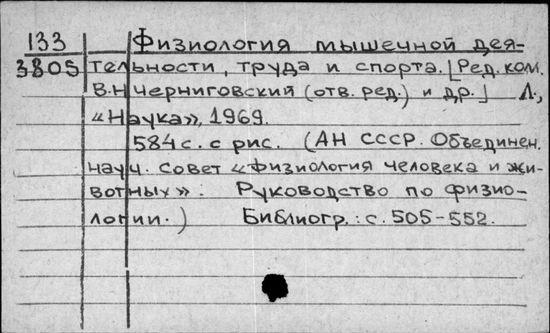 133 Физиология мышечной дея-
3805 тельности, труда и спорта. [Ред. ком.
В.Н Черниговский (отв. ред.) и др.] Л.,
«Наука», 1969.
584 с. с рис. (АН СССР. Объединен.
науч. совет «Физиология человека и жи-
вотных». Руководство по физио-
логии.) Библиогр.: с. 505-552.